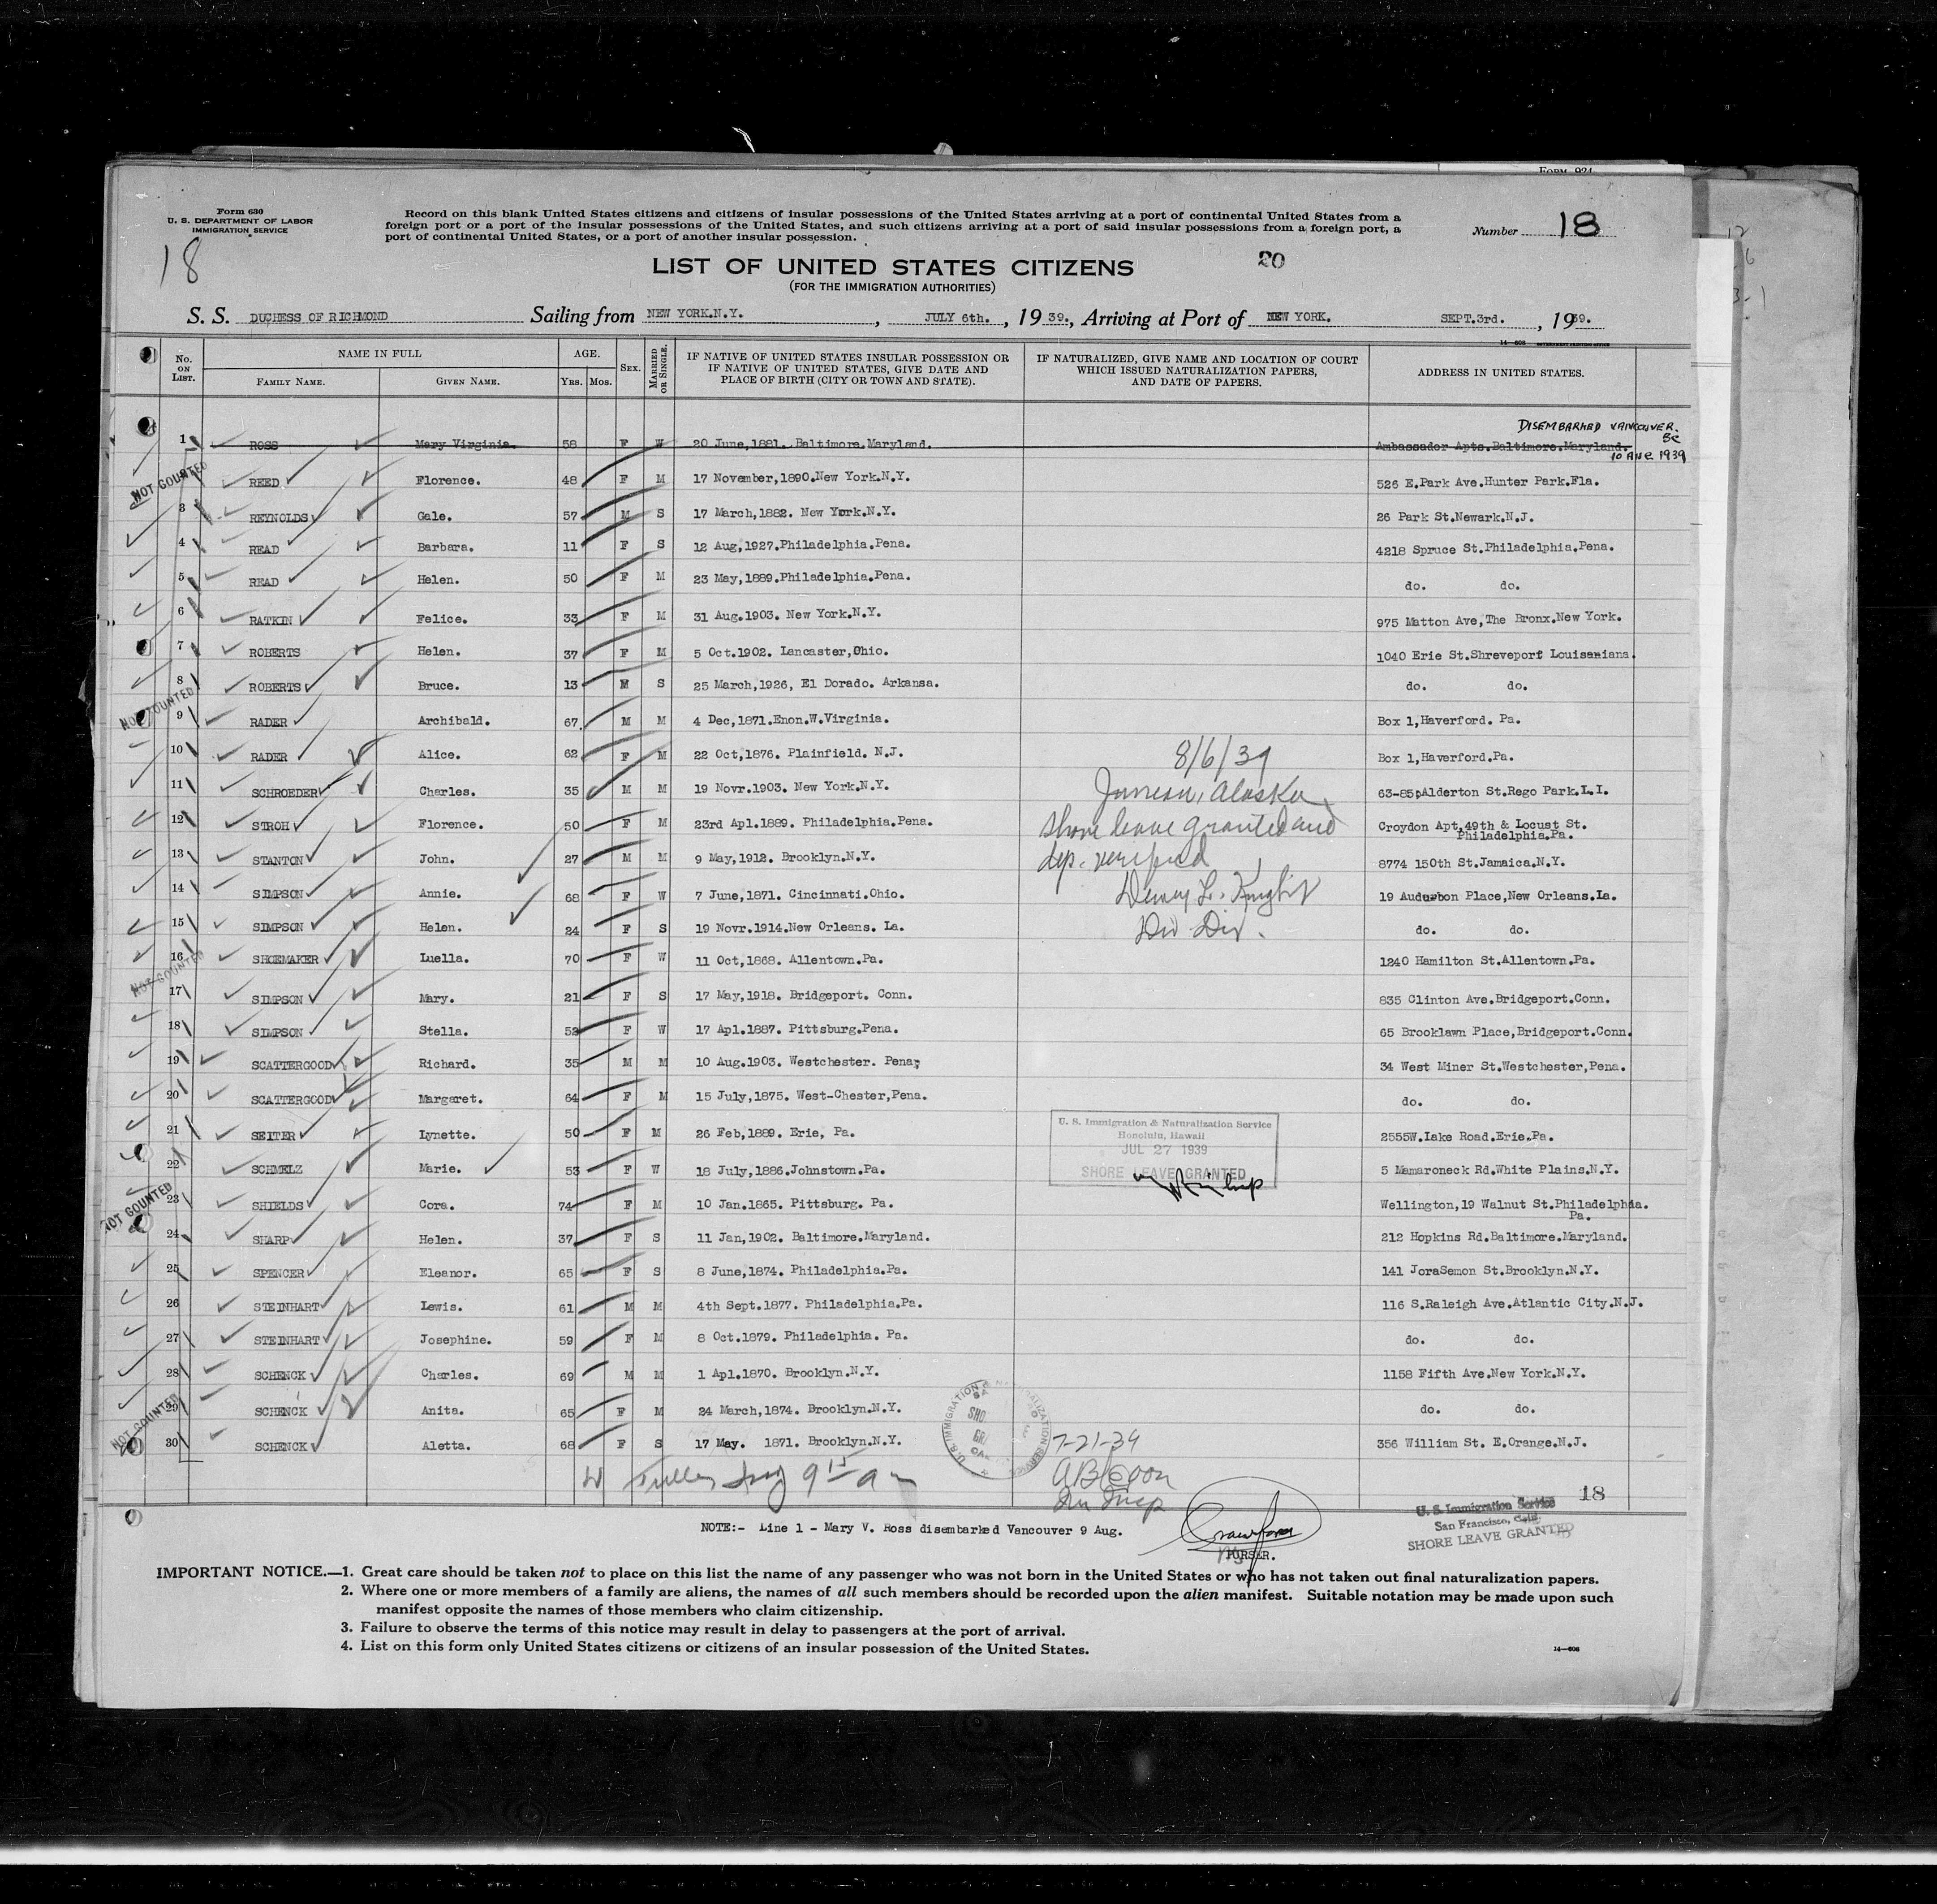 FORM 924
Form 630
U. S. DEPARTMENT OF LABOR
IMMIGRATION SERVICE
18
Record on this blank United States citizens and citizens of insular possessions of the United States arriving at a port of continental United States from a
foreign port or a port of the insular possessions of the United States, and such citizens arriving at a port of said insular possessions from a foreign port, a
port of continental United States, or a port of another insular possession.
Number 18
LIST OF UNITED STATES CITIZENS
20
(FOR THE IMMIGRATION AUTHORITIES)
S. S. DUCHESS OF RICHMOND Sailing from NEW YORK.N.Y. , JULY 6th. , 1939., Arriving at Port of NEW YORK. SEPT.3rd. , 1939.
14—608 GOVERNMENT PRINTING OFFICE
No. ON LIST. NAME IN FULL FAMILY NAME. GIVEN NAME. AGE. Yrs. Mos. SEX. MARRIED OR SINGLE. IF NATIVE OF UNITED STATES INSULAR POSSESSION OR IF NATIVE OF UNITED STATES, GIVE DATE AND PLACE OF BIRTH (CITY OR TOWN AND STATE). IF NATURALIZED, GIVE NAME AND LOCATION OF COURT WHICH ISSUED NATURALIZATION PAPERS, AND DATE OF PAPERS. ADDRESS IN UNITED STATES.
DISEMBARKED VANCOUVER. BC
1 ROSS Mary Virginia. 58 F W 20 June,1881. Baltimore.Maryland. Ambassador Apts.Baltimore.Maryland.
10 AUG 1939
NOT COUNTED
REED Florence. 48 F M 17 November,1890.New York.N.Y. 526 E.Park Ave.Hunter Park.Fla.
3 REYNOLDS Gale. 57 M S 17 March,1882. New York.N.Y. 26 Park St.Newark.N.J.
4 READ Barbara. 11 F S 12 Aug,1927.Philadelphia.Pena. 4218 Spruce St.Philadelphia.Pena.
5 READ Helen. 50 F M 23 May,1889.Philadelphia.Pena. do. do.
6 RATKIN Felice. 33 F M 31 Aug.1903. New York.N.Y. 975 Matton Ave,The Bronx.New York.
7 ROBERTS Helen. 37 F M 5 Oct.1902. Lancaster,Ohio. 1040 Erie St.Shreveport Louisaniana.
8 ROBERTS Bruce. 13 M S 25 March,1926, El Dorado. Arkansa. do. do.
NOT COUNTED
9 RADER Archibald. 67 M M 4 Dec,1871.Enon.W.Virginia. Box 1,Haverford. Pa.
10 RADER Alice. 62 F M 22 Oct,1876. Plainfield. N.J. 8/6/39 Box 1,Haverford.Pa.
11 SCHROEDER Charles. 35 M M 19 Novr.1903. New York.N.Y. Juneau, Alaska 63-85 Alderton St.Rego Park.L.I.
12 STROH Florence. 50 F M 23rd Apl.1889. Philadelphia.Pena. Shore leave granted and Croydon Apt,49th & Locust St.
Philadelphia.Pa.
13 STANTON John. 27 M M 9 May,1912. Brooklyn.N.Y. dep. verified 8774 150th St.Jamaica.N.Y.
14 SIMPSON Annie. 68 F W 7 June,1871. Cincinnati.Ohio. Dewey L. Knight 19 Audubon Place,New Orleans.La.
15 SIMPSON Helen. 24 F S 19 Novr.1914.New Orleans. La. do. do.
16 SHOEMAKER Luella. 70 F W 11 Oct,1868. Allentown.Pa. 1240 Hamilton St.Allentown.Pa.
NOT COUNTED
17 SIMPSON Mary. 21 F S 17 May,1918. Bridgeport. Conn. 835 Clinton Ave.Bridgeport.Conn.
18 SIMPSON Stella. 52 F W 17 Apl.1887. Pittsburg.Pena. 65 Brooklawn Place,Bridgeport.Conn.
19 SCATTERGOOD Richard. 35 M M 10 Aug.1903. Westchester. Pena; 34 West Miner St.Westchester,Pena.
20 SCATTERGOOD Margaret. 64 F M 15 July,1875. West-Chester,Pena. do. do.
21 SEITER Lynette. 50 F M 26 Feb,1889. Erie, Pa. 2555W.Lake Road.Erie.Pa.
U. S. Immigration & Naturalization Service
Honolulu, Hawaii
JUL 27 1939
SHORE LEAVE GRANTED
22 SCHMELZ Marie. 53 F W 18 July,1886.Johnstown.Pa. 5 Mamaroneck Rd.White Plains.N.Y.
NOT COUNTED
23 SHIELDS Cora. 74 F M 10 Jan.1865. Pittsburg. Pa. Wellington,19 Walnut St.Philadelphia.
Pa.
24 SHARP Helen. 37 F S 11 Jan,1902. Baltimore.Maryland. 212 Hopkins Rd.Baltimore.Maryland.
25 SPENCER Eleanor. 65 F S 8 June,1874. Philadelphia.Pa. 141 JoraSemon St.Brooklyn.N.Y.
26 STEINHART Lewis. 61 M M 4th Sept.1877. Philadelphia.Pa. 116 S.Raleigh Ave.Atlantic City.N.J.
27 STEINHART Josephine. 59 F M 8 Oct.1879. Philadelphia. Pa. do. do.
28 SCHENCK Charles. 69 M M 1 Apl.1870. Brooklyn.N.Y. 1158 Fifth Ave.New York.N.Y.
NOT COUNTED
29 SCHENCK Anita. 65 F M 24 March,1874. Brooklyn.N.Y. do. do.
30 SCHENCK Aletta. 68 F S 17 May. 1871. Brooklyn.N.Y. 7-21-39 356 William St. E.Orange.N.J.
18
NOTE:- Line 1 - Mary V. Ross disembarked Vancouver 9 Aug.
PURSER.
U. S. Immigration Service
San Francisco, Calif
SHORE LEAVE GRANTED
IMPORTANT NOTICE.—1. Great care should be taken not to place on this list the name of any passenger who was not born in the United States or who has not taken out final naturalization papers.
2. Where one or more members of a family are aliens, the names of all such members should be recorded upon the alien manifest. Suitable notation may be made upon such
manifest opposite the names of those members who claim citizenship.
3. Failure to observe the terms of this notice may result in delay to passengers at the port of arrival.
4. List on this form only United States citizens or citizens of an insular possession of the United States.
14—608